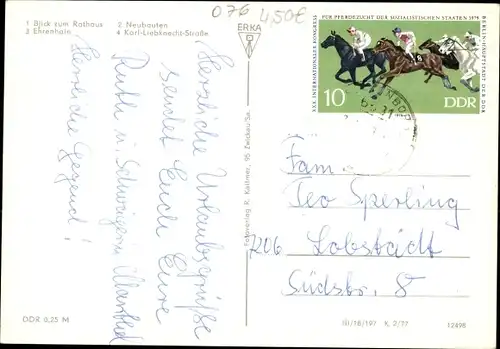 1 Blick zum Rathaus
2 Neubauten
3 Ehrenhain
4 Karl-Liebknecht-Straße
076
4,50€
ERKA
XXX. INTERNATIONALER KONGRESS
FÜR PFERDEZUCHT DER SOZIALISTISCHEN STAATEN 1974
BERLIN-HAUPTSTADT DER DDR
10
DDR
Herzliche Urlaubsgrüße
sendet Euch Eure
Ruth u. Schwägerin
Herrliche Gegend!
Fotoverlag R. Kallmer, 95 Zwickau/Sa.
Fam.
Teo Sperling
7206 Lobstädt
Südstr. 8
DDR 0,25 M
K 2/77
12498